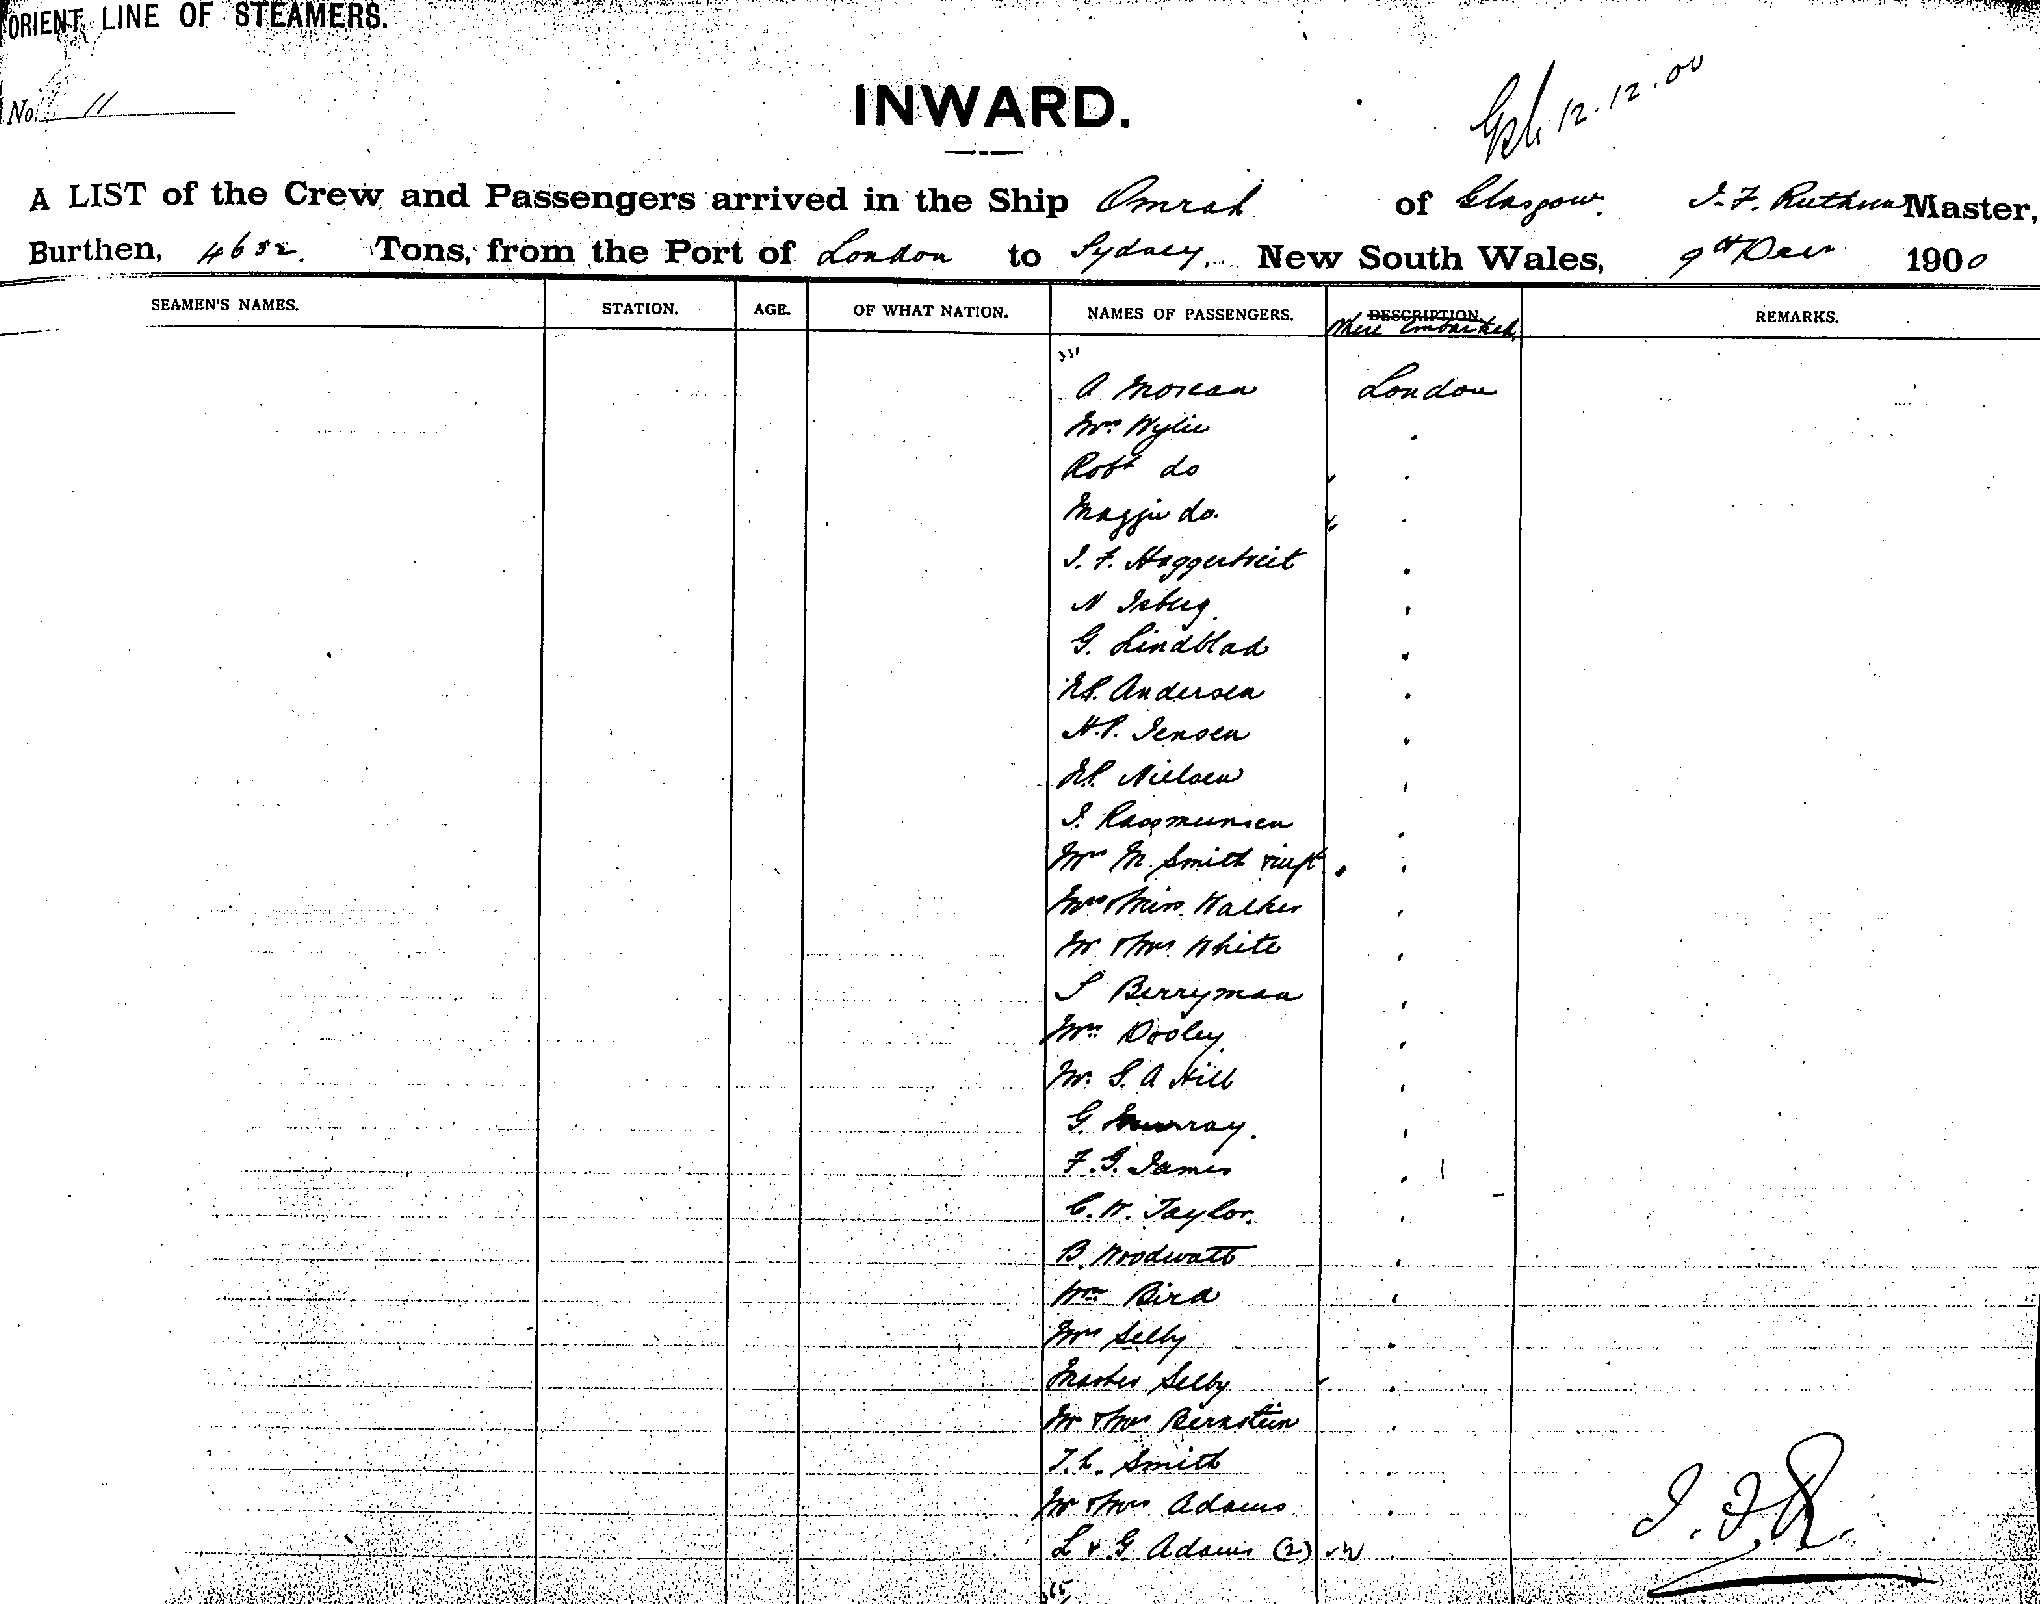 ORIENT LINE OF STEAMERS.
No. 11
INWARD.
12.12.00
A LIST of the Crew and Passengers arrived in the Ship Omrah of Glasgow. J. F. Ruthven Master,
Burthen, 4632. Tons, from the Port of London to Sydney, New South Wales, 9th Decr 1900
SEAMEN'S NAMES. STATION. AGE. OF WHAT NATION. NAMES OF PASSENGERS. DESCRIPTION REMARKS.
Where Embarked.
331
A Morean London
Mrs Wylie
Robt do
Maggie do.
N Isberg
G. Lindblad
Andersen
H.P. Jensen
Nielsen
J. Rassmunsen
Mrs M. Smith & inft
Mrs & Miss Walker
Mr & Mrs White
S Berryman
Mrs Dooley
Mr. S. A Hill
G. Murray.
F. G. James
C. W. Taylor.
B. Woodwatt
Wm Bird
Mrs Selby
Master Selby
Mr & Mrs Bernstein
T. C. Smith
Mr & Mrs Adams
L & G Adams (2)
J. F. R.